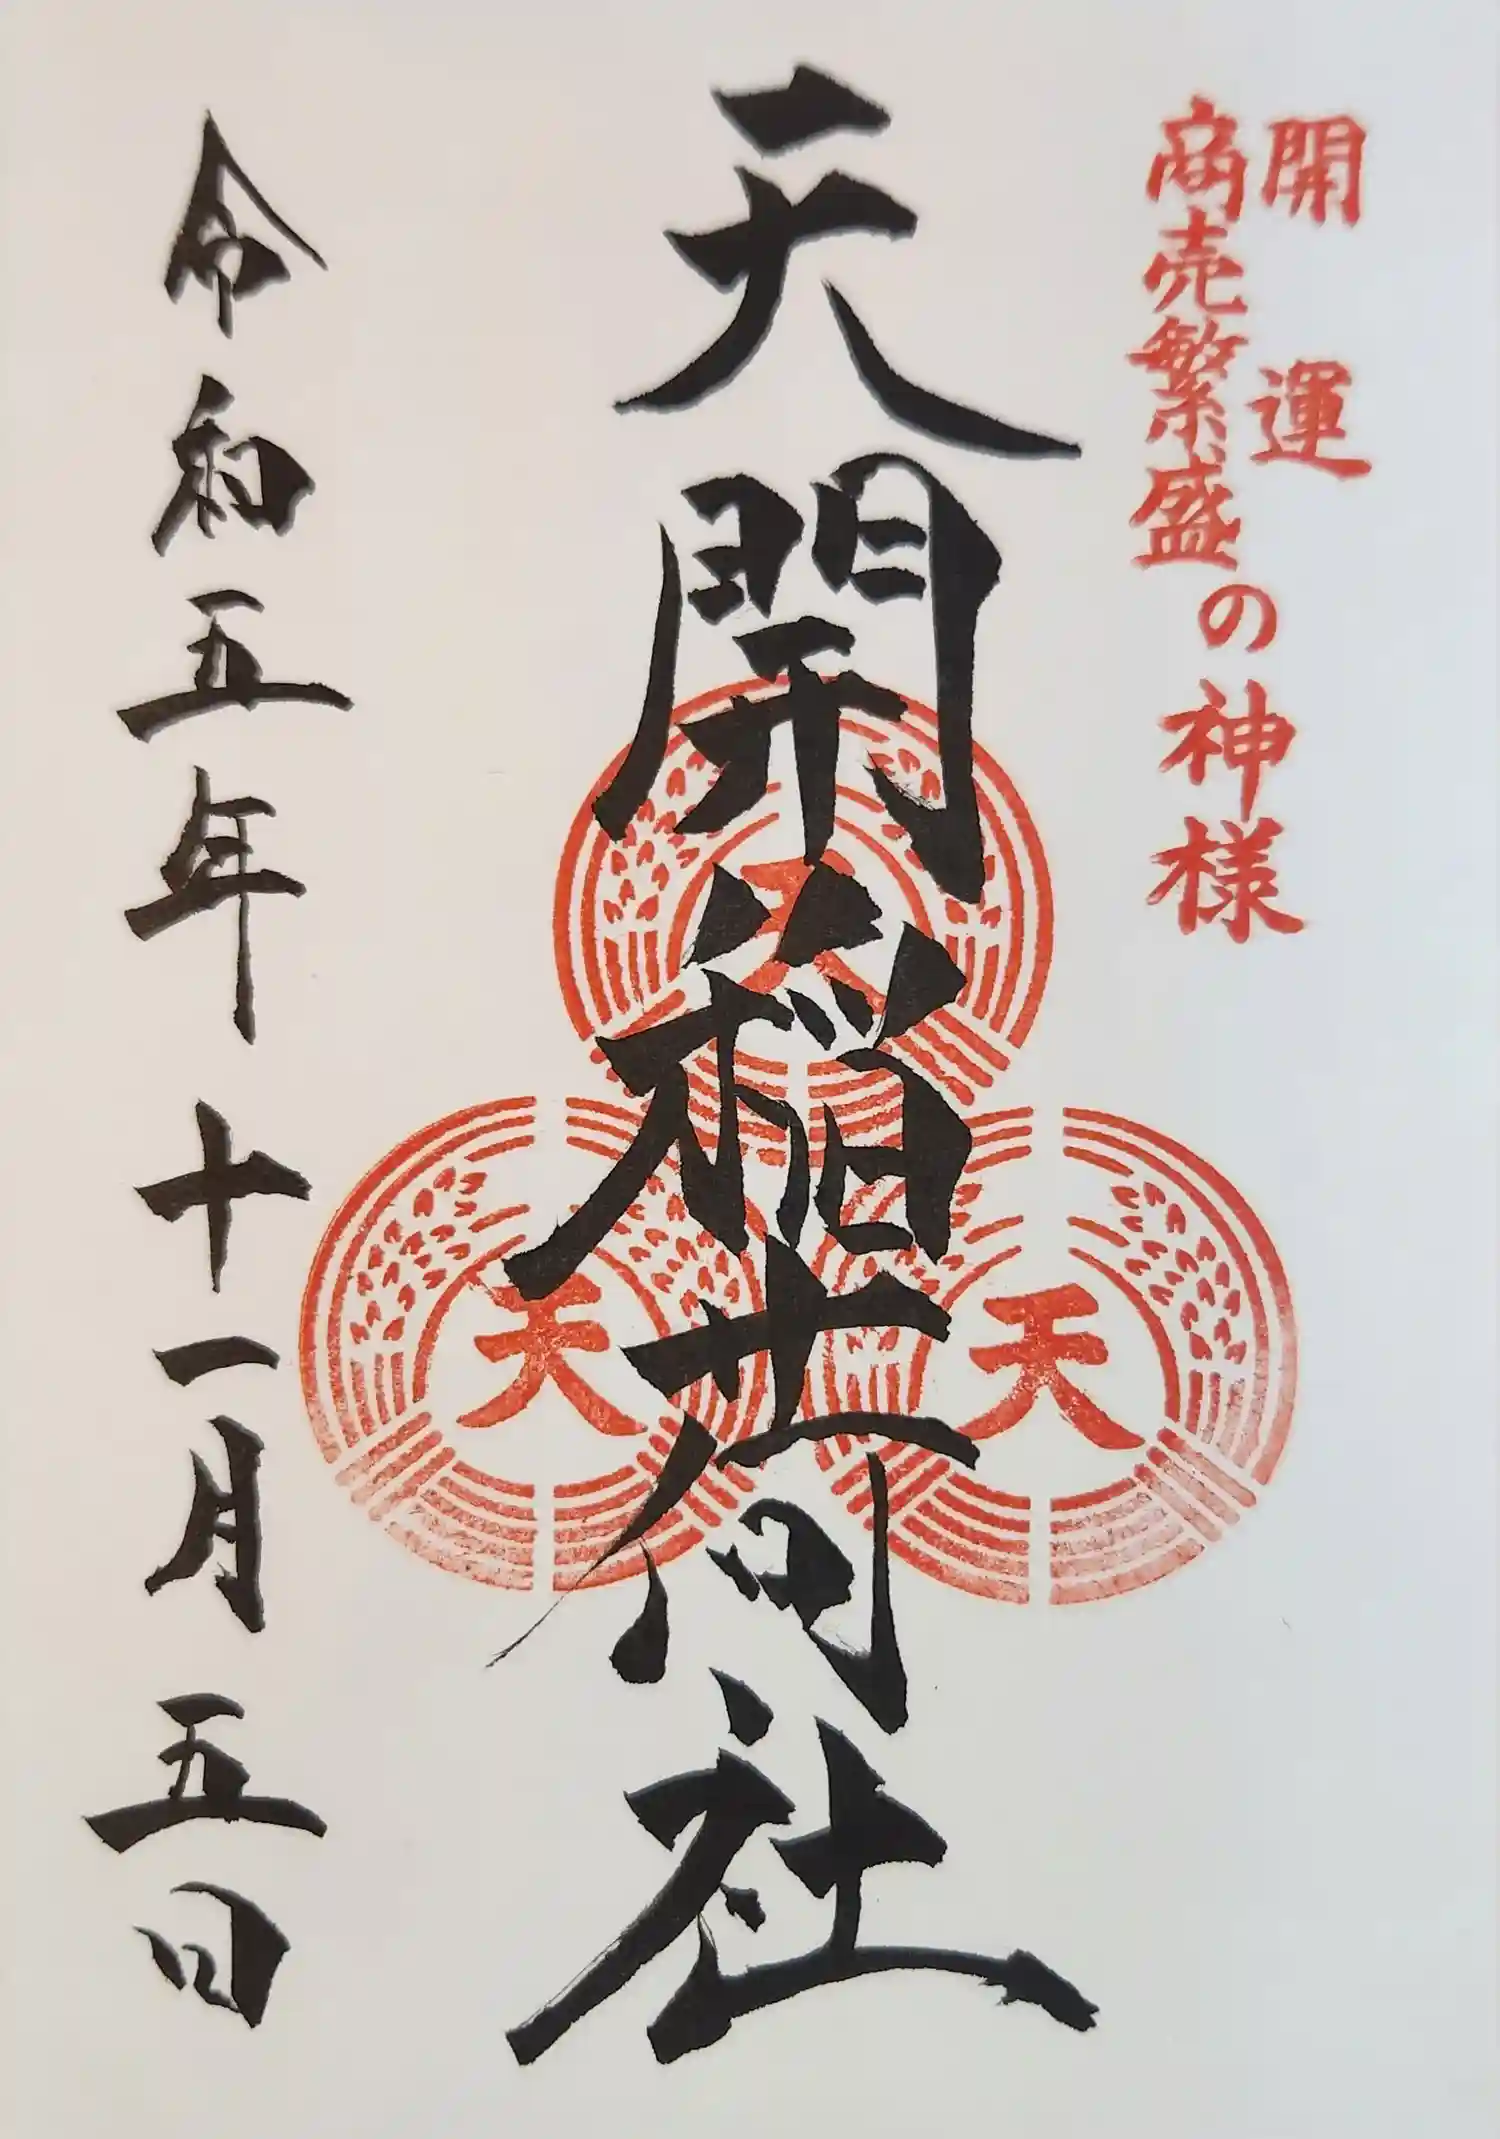 開運
商売繁盛
の神様
天開稲荷社
天
天
天
令和五年十一月五日